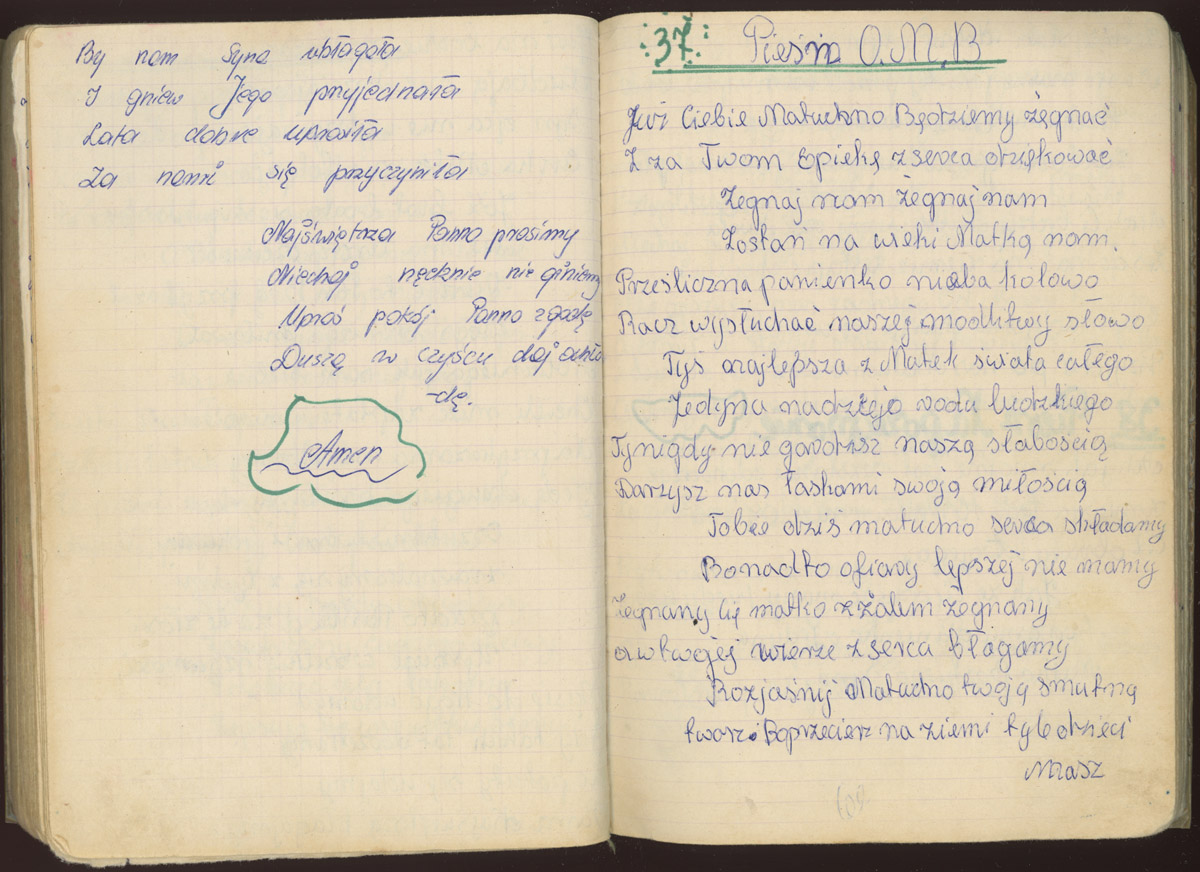 By nam Syna ubłagała
I gniew Jego przyjednała
Lata dobre uprosiła
Za nami się przyczyniła
Najświętrza Panno prosimy
Niechaj nędznie nie giniemy
Uproś pokój Panno zgodę
Duszą w czyścu daj ochło
-dę.
Amen
37. Pieśń O.M.B
Już Ciebie Matuchno Będziemy żegnać
I za Twom Opiekę z serca dziękować
Żegnaj nam żegnaj nam
Zostań na wieki Matką nam.
Prześliczna panienko nieba kolowo
Racz wysłuchać naszej modlitwy słowo
Tyś najlepsza z Matek świata całego
Jedyna nadziejo rodu ludzkiego
Ty nigdy nie gardzisz naszą słabością
Darzysz nas łaskami swoją miłością
Tobie dziś matuchno serca składamy
Bo nadto ofiary lepszej nie mamy
Żegnany Cię matko z żalem żegnany
a w twojej wierze z serca błagamy
Rozjaśnij Matuchno twoją smutną
twarz Bo przecież na ziemi tyle dzieci
Masz